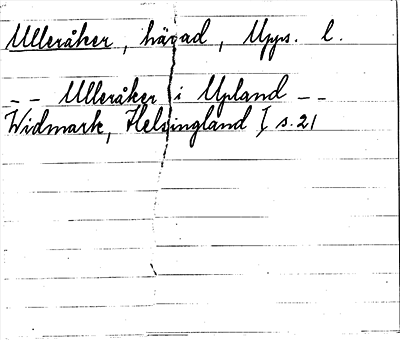 Ulleråker, härad, Upps. l.
– – Ulleråker i Upland – –
Widmark, Helsingland I s. 21